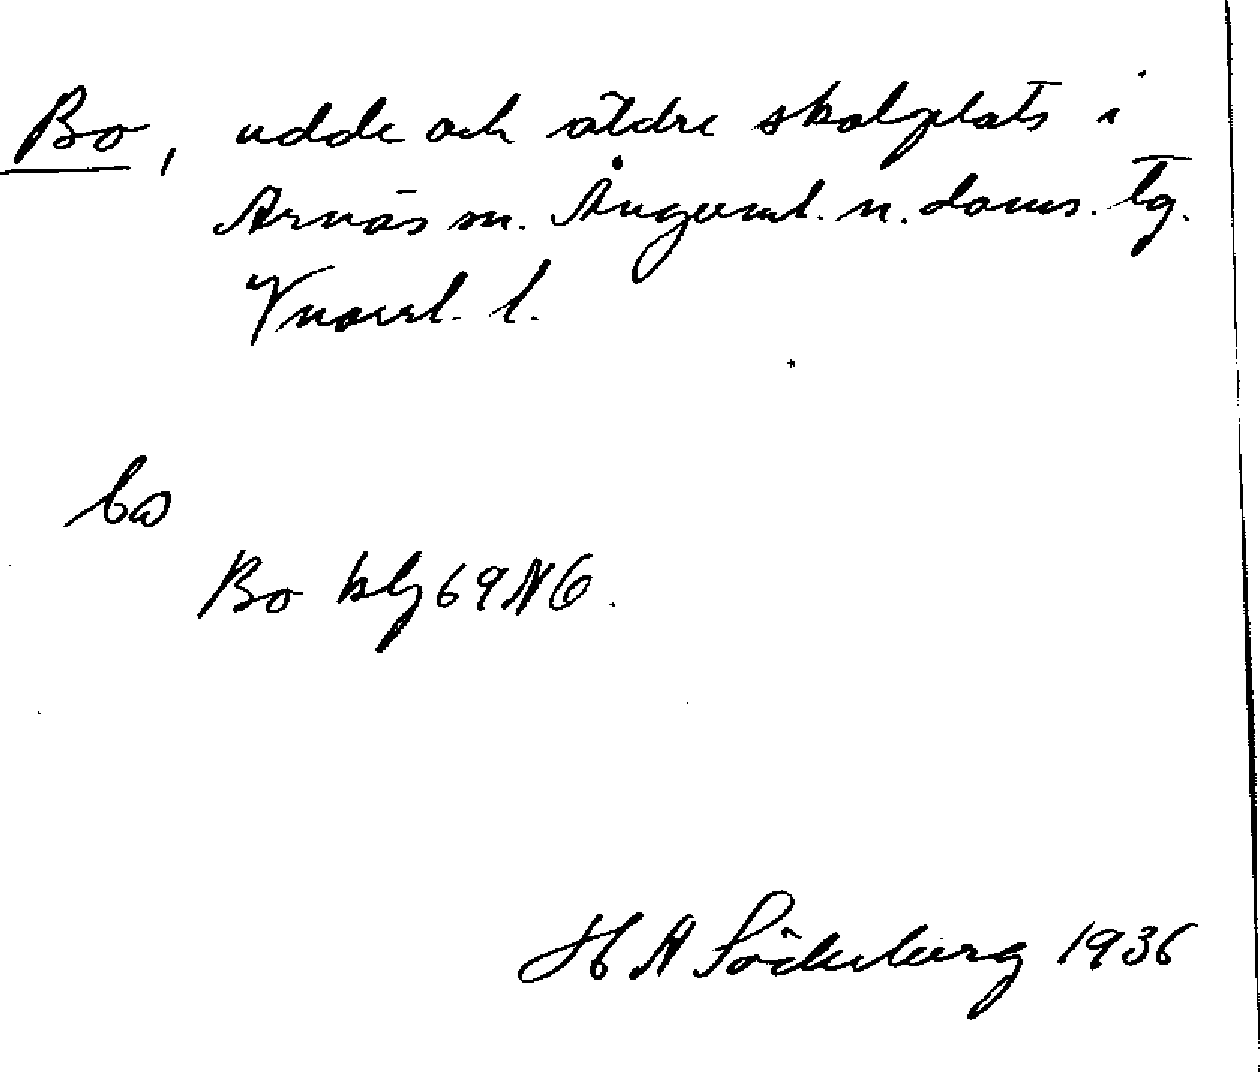 Bo, udde och äldre skolplats i
Arnäs sn. Ångerml. n. doms. tg.
Vnorrl. l.
bω
Bo blz 69 NO.
H A Söderberg 1936